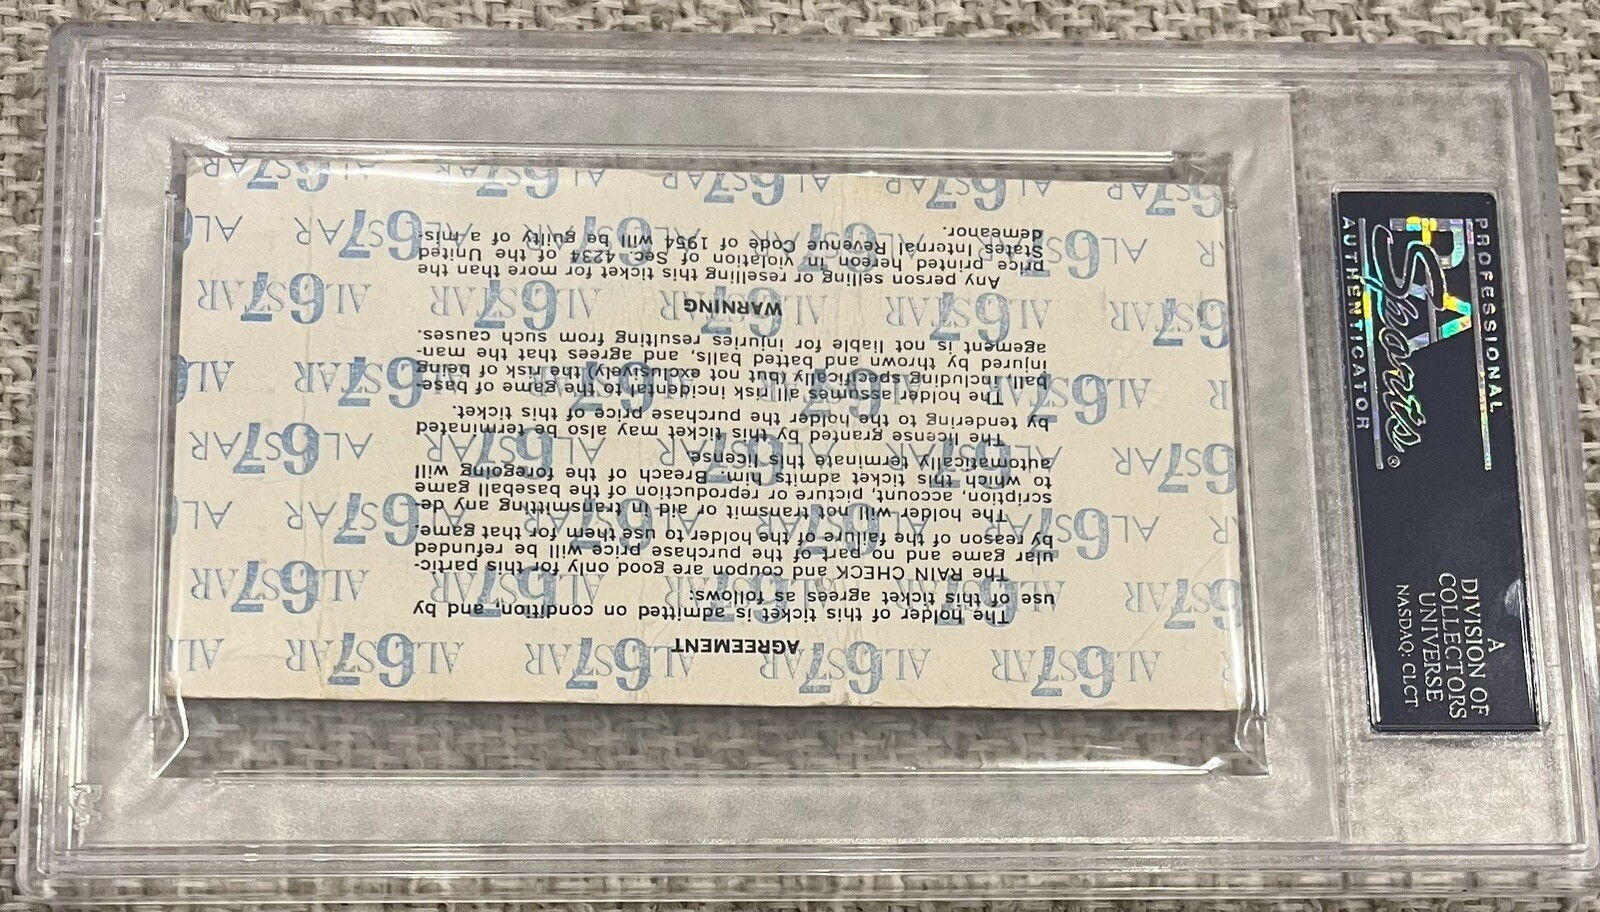 AGREEMENT
The holder of this ticket is admitted on condition, and by
use of this ticket agrees as follows:
The RAIN CHECK and coupon are good only for this partic-
ular game and no part of the purchase price will be refunded
by reason of the failure of the holder to use them for that game.
The holder will not transmit or aid in transmitting any de-
scription, account, picture or reproduction of the baseball game
to which this ticket admits him. Breach of the foregoing will
automatically terminate this license.
The license granted by this ticket may also be terminated
by tendering to the holder the purchase price of this ticket.
The holder assumes all risk incidental to the game of base-
ball, including specifically (but not exclusively) the risk of being
injured by thrown and batted balls, and agrees that the man-
agement is not liable for injuries resulting from such causes.
WARNING
Any person selling or reselling this ticket for more than the
price printed hereon in violation of Sec. 4234 of the United
States Internal Revenue Code of 1954 will be guilty of a mis-
demeanor.
PROFESSIONAL
PSA
Sports®
AUTHENTICATOR
A
DIVISION OF
COLLECTORS
UNIVERSE
NASDAQ: CLCT